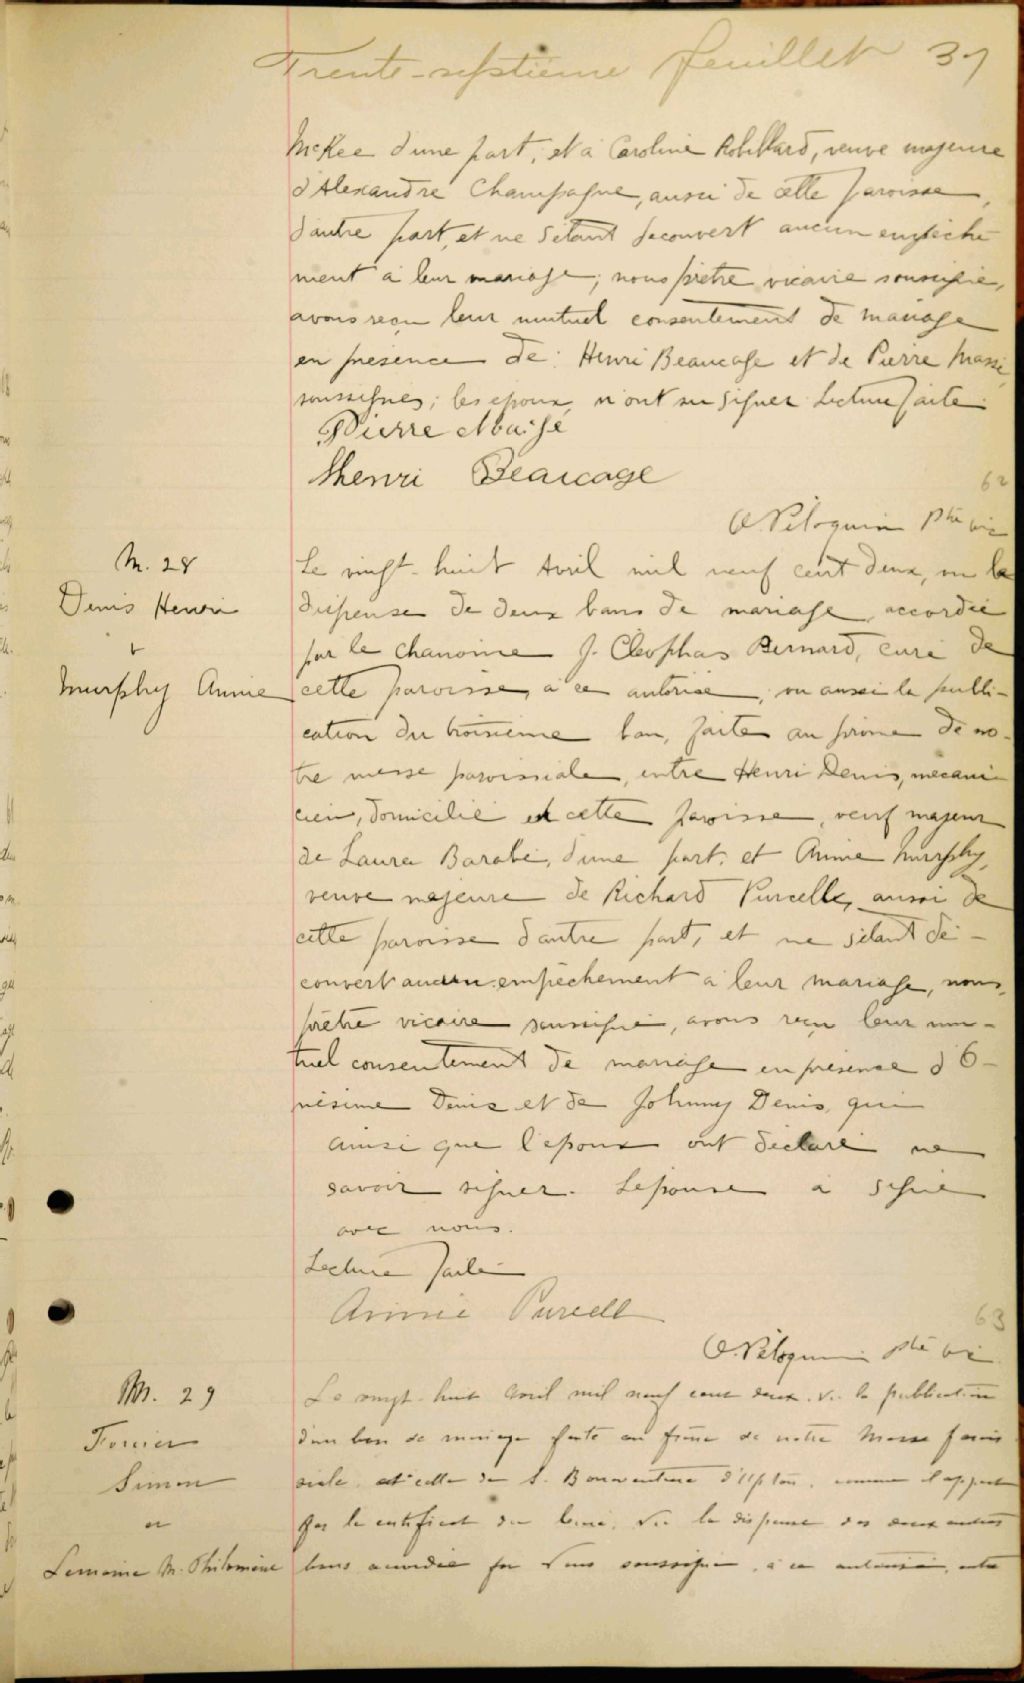 Trente-septième feuillet 37
McKee d'une part, et à Caroline Robillard, veuve majeure
d'Alexandre Champagne, aussi de cette paroisse,
d'autre part, et ne s'étant découvert aucun empêche
ment à leur mariage; nous prêtre vicaire soussigné,
avons reçu leur mutuel consentement de mariage
en présence de: Henri Beaucage et de Pierre Massé
soussignés; les époux n'ont su signer. Lecture faite.
Pierre Massé
Henri Beaucage
62
O. Péloquin Ptre vic
M. 28
Denis Henri
+
Murphy Annie
Le vingt-huit Avril mil neuf cent deux, vu la
dispense de deux bans de mariage accordée
par le chanoine J. Cléophas Bernard, curé de
cette paroisse, à ce autorisé, vu aussi la publi-
cation du troisième ban, faite au prône de no-
tre messe paroissiale, entre Henri Denis, mécani
cien, domicilié cette paroisse, veuf majeur
de Laura Barabé, d'une part, et Annie Murphy,
veuve majeure de Richard Purcelle, aussi de
cette paroisse d'autre part, et ne s'étant dé-
couvert aucun empêchement à leur mariage, nous,
prêtre vicaire soussigné, avons reçu leur mu-
tuel consentement de mariage en présence d'O-
nésime Denis et de Johnny Denis, qui
ainsi que l'époux ont déclaré ne
savoir signer. L'épouse a signé
avec nous.
Lecture faite
Annie Purcell
63
O. Péloquin Ptre vic
M. 29
Simon
et
Lemoine M. Philomène
Le vingt-huit Avril mil neuf cent deux. Vu la publication
d'un ban de mariage faite au prône de notre Messe parois
siale et celle de S. Bonaventure d'Upton, comme il appert
par le certificat du Curé. Vu la dispense des deux autres
bans accordée par Nous soussigné, à ce autorisé, entre